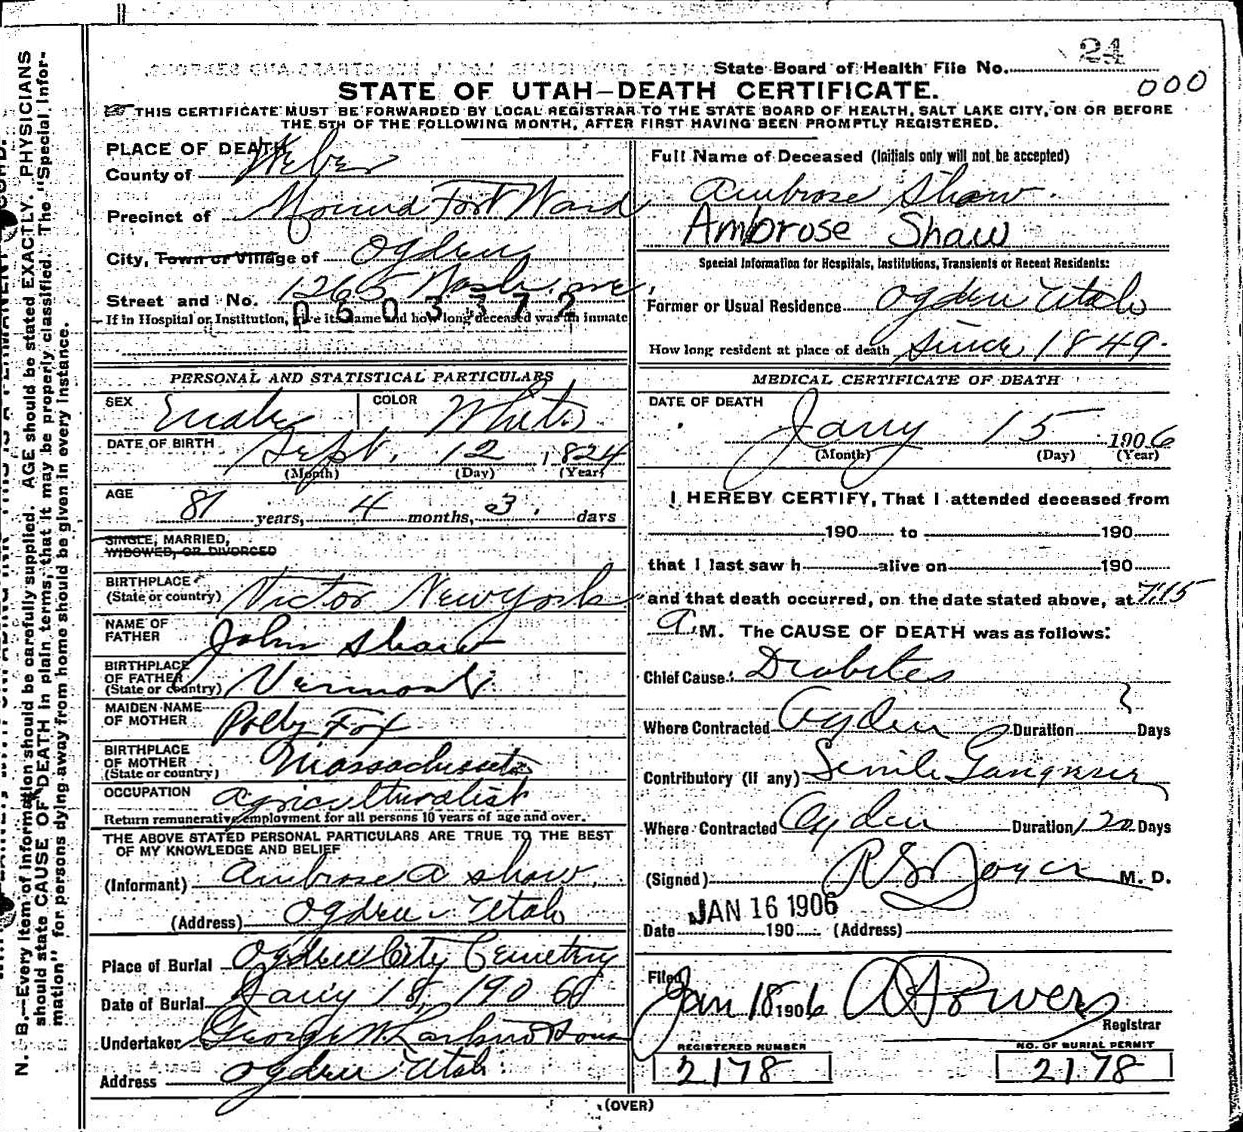 24
State Board of Health File No.
000
STATE OF UTAH—DEATH CERTIFICATE.
THIS CERTIFICATE MUST BE FORWARDED BY LOCAL REGISTRAR TO THE STATE BOARD OF HEALTH, SALT LAKE CITY, ON OR BEFORE
THE 5TH OF THE FOLLOWING MONTH, AFTER FIRST HAVING BEEN PROMPTLY REGISTERED.
PLACE OF DEATH
County of Weber
Precinct of Mound Fort Ward
City, Town or Village of Ogden
Street and No. 1265 Wash. ave.
0603372
If in Hospital or Institution, give its name and how long deceased was an inmate
PERSONAL AND STATISTICAL PARTICULARS
SEX Male COLOR White
DATE OF BIRTH Sept. 12 1824
(Month) (Day) (Year)
AGE
81 years, 4 months, 3. days
SINGLE, MARRIED,
WIDOWED, OR DIVORCED
BIRTHPLACE
(State or country) Victor New York
NAME OF
FATHER John Shaw
BIRTHPLACE
OF FATHER
(State or country) Vermont
MAIDEN NAME
OF MOTHER Polly Fox
BIRTHPLACE
OF MOTHER
(State or country) Massachusetts
OCCUPATION Agriculturalist
Return remunerative employment for all persons 10 years of age and over.
THE ABOVE STATED PERSONAL PARTICULARS ARE TRUE TO THE BEST
OF MY KNOWLEDGE AND BELIEF
(Informant) Ambrose A Shaw.
(Address) Ogden Utah
Place of Burial Ogden City Cemetery
Date of Burial Jany 18, 1906
Undertaker George W. Larkin & Sons
Address Ogden Utah
Full Name of Deceased (Initials only will not be accepted)
Ambrose Shaw.
Ambrose Shaw
Special Information for Hospitals, Institutions, Transients or Recent Residents:
Former or Usual Residence Ogden Utah
How long resident at place of death since 1849.
MEDICAL CERTIFICATE OF DEATH
DATE OF DEATH
Jany 15 1906
(Month) (Day) (Year)
I HEREBY CERTIFY, That I attended deceased from
190 to 190
that I last saw h alive on 190
and that death occurred, on the date stated above, at 7.15
A.M. The CAUSE OF DEATH was as follows:
Chief Cause: Diabites
Where Contracted Ogden Duration ? Days
Contributory (if any) Senile Gangrene
Where Contracted Ogden Duration 120 Days
(Signed) M. D.
JAN 16 1906
Date 190 (Address)
Filed Jan 18 1906 Powers
Registrar
REGISTERED NUMBER
2178
NO. OF BURIAL PERMIT
2178
(OVER)
N. B.—Every item of information should be carefully supplied. AGE should be stated EXACTLY. PHYSICIANS
should state CAUSE OF DEATH in plain terms, that it may be properly classified. The "Special Infor-
mation" for persons dying away from home should be given in every instance.